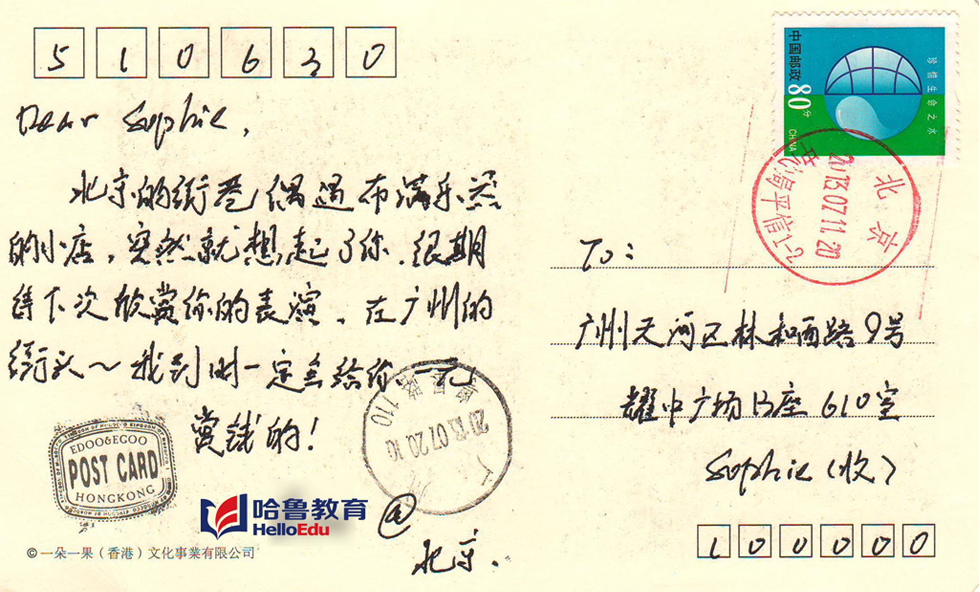 510630
中国邮政
80分
CHINA
珍惜生命之水
北京
2013.07.11.20
昌平信1-2
Dear Sophie,
北京的街巷偶遇布满乐器
的小店，突然就想起了你．很期
待下次欣赏你的表演、在广州的
街头～我到时一定会给你一元
赏钱的！
To：
广州天河区林和西路9号
耀中广场B座610室
Sophie（收）
2013.07.20.10
110
EDOO&EGOO
POST CARD
HONGKONG
哈鲁教育
HelloEdu
@
北京．
©一朵一果（香港）文化事業有限公司
100000